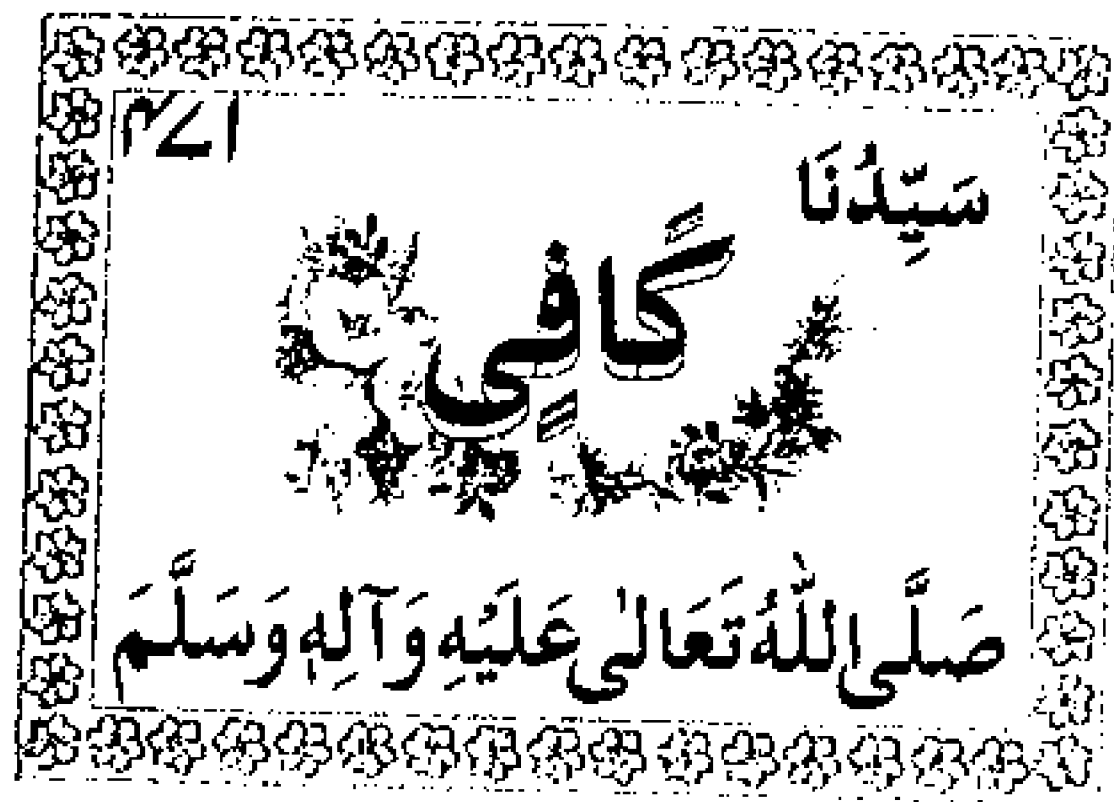 ۴۷۱
سَيِّدُنَا
كَافِى
صَلَّى اللّٰهُ تَعَالٰى عَلَيْهِ وَآلِهٖ وَسَلَّمَ